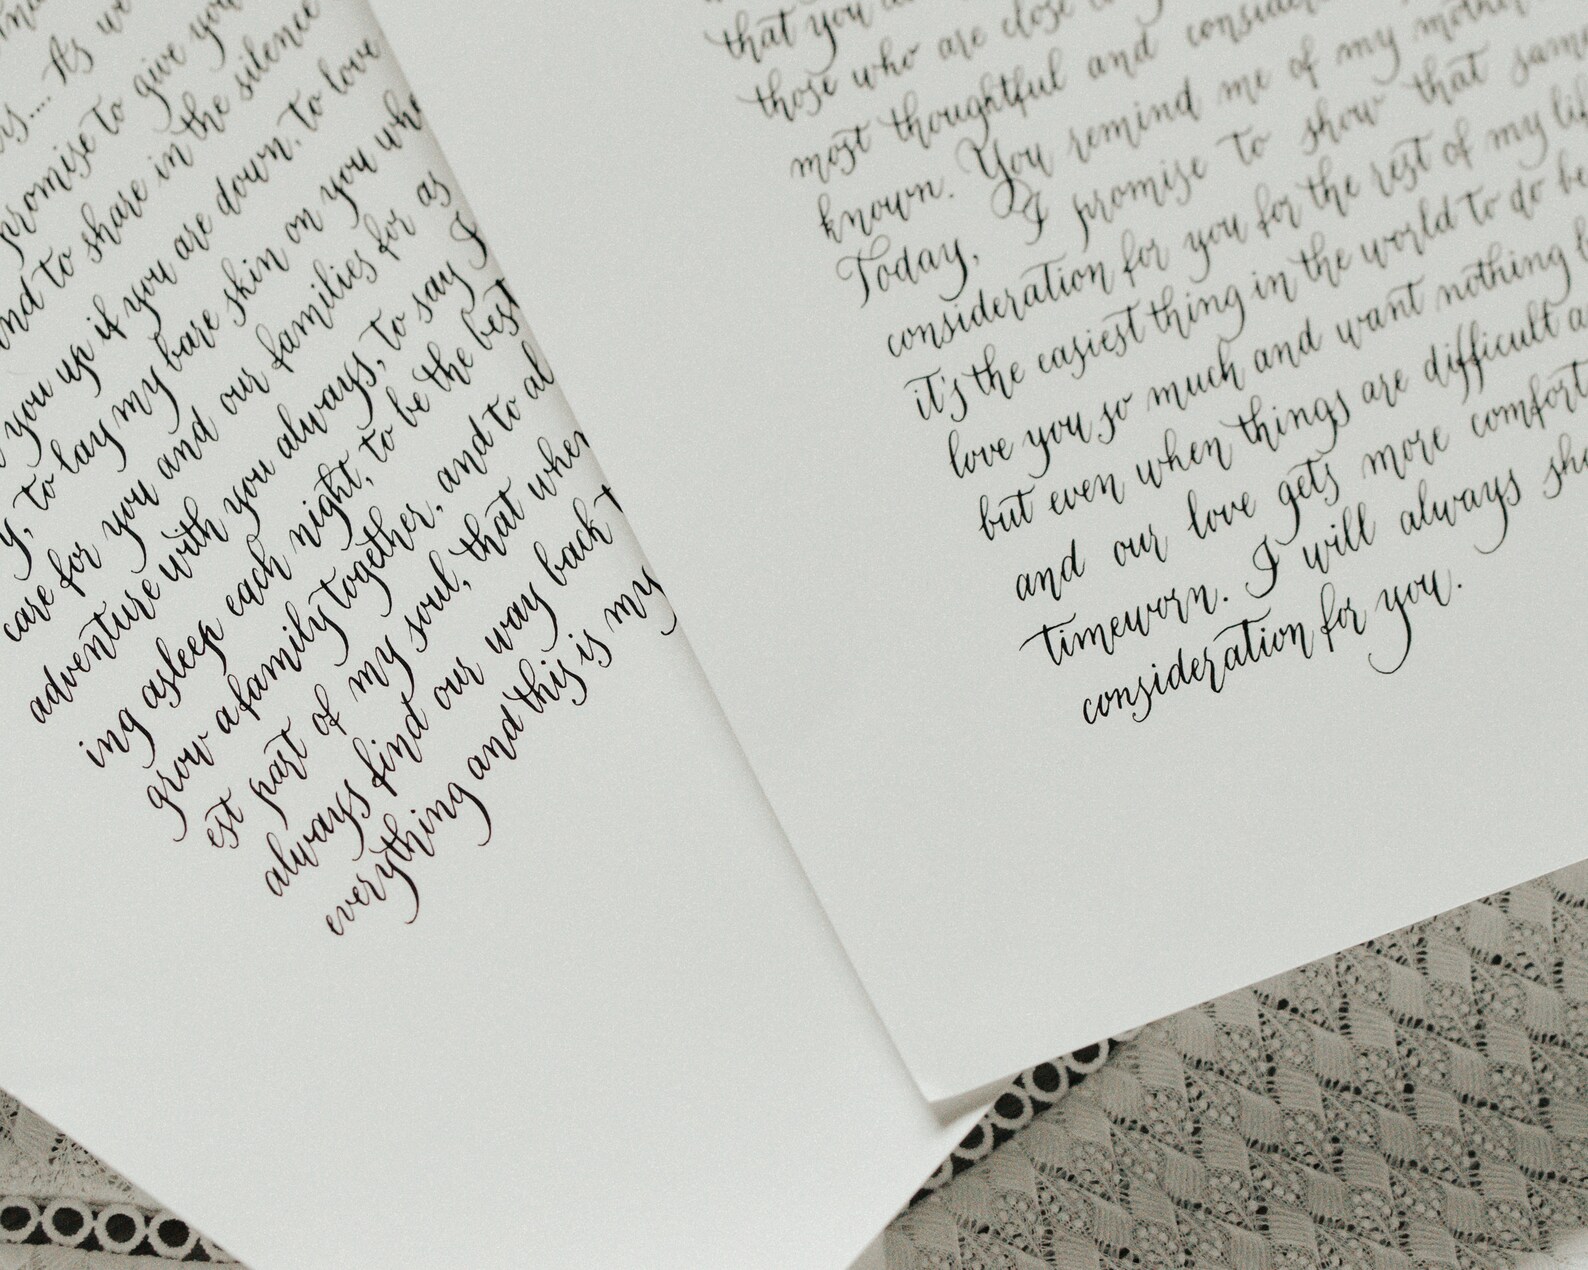 As we
promise to give you
and to share in the silence
you up if you are down, to love
to lay my bare skin on you whe
care for you and our families for as
adventure with you always, to say I
ing asleep each night, to be the best
grow a family together, and to al
est part of my soul, that when
always find our way back t
everything and this is my
that you
those who are close
most thoughtful and consider
known. You remind me of my mother
Today, I promise to show that same
consideration for you for the rest of my lif
it's the easiest thing in the world to do be
love you so much and want nothing b
but even when things are difficult a
and our love gets more comfort
timeworn. I will always sho
consideration for you.